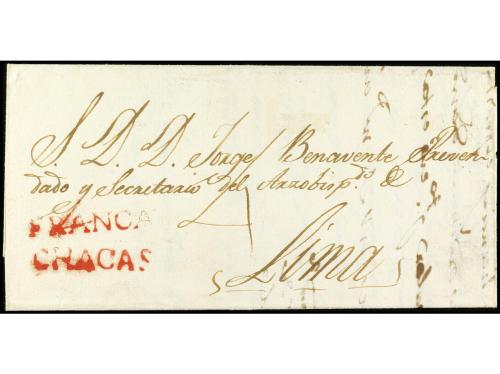 S. D. D. Jorge Benavente Preven-
dado y Secretario del Arzobisp.do &
Lima
FRANCA
CHACAS